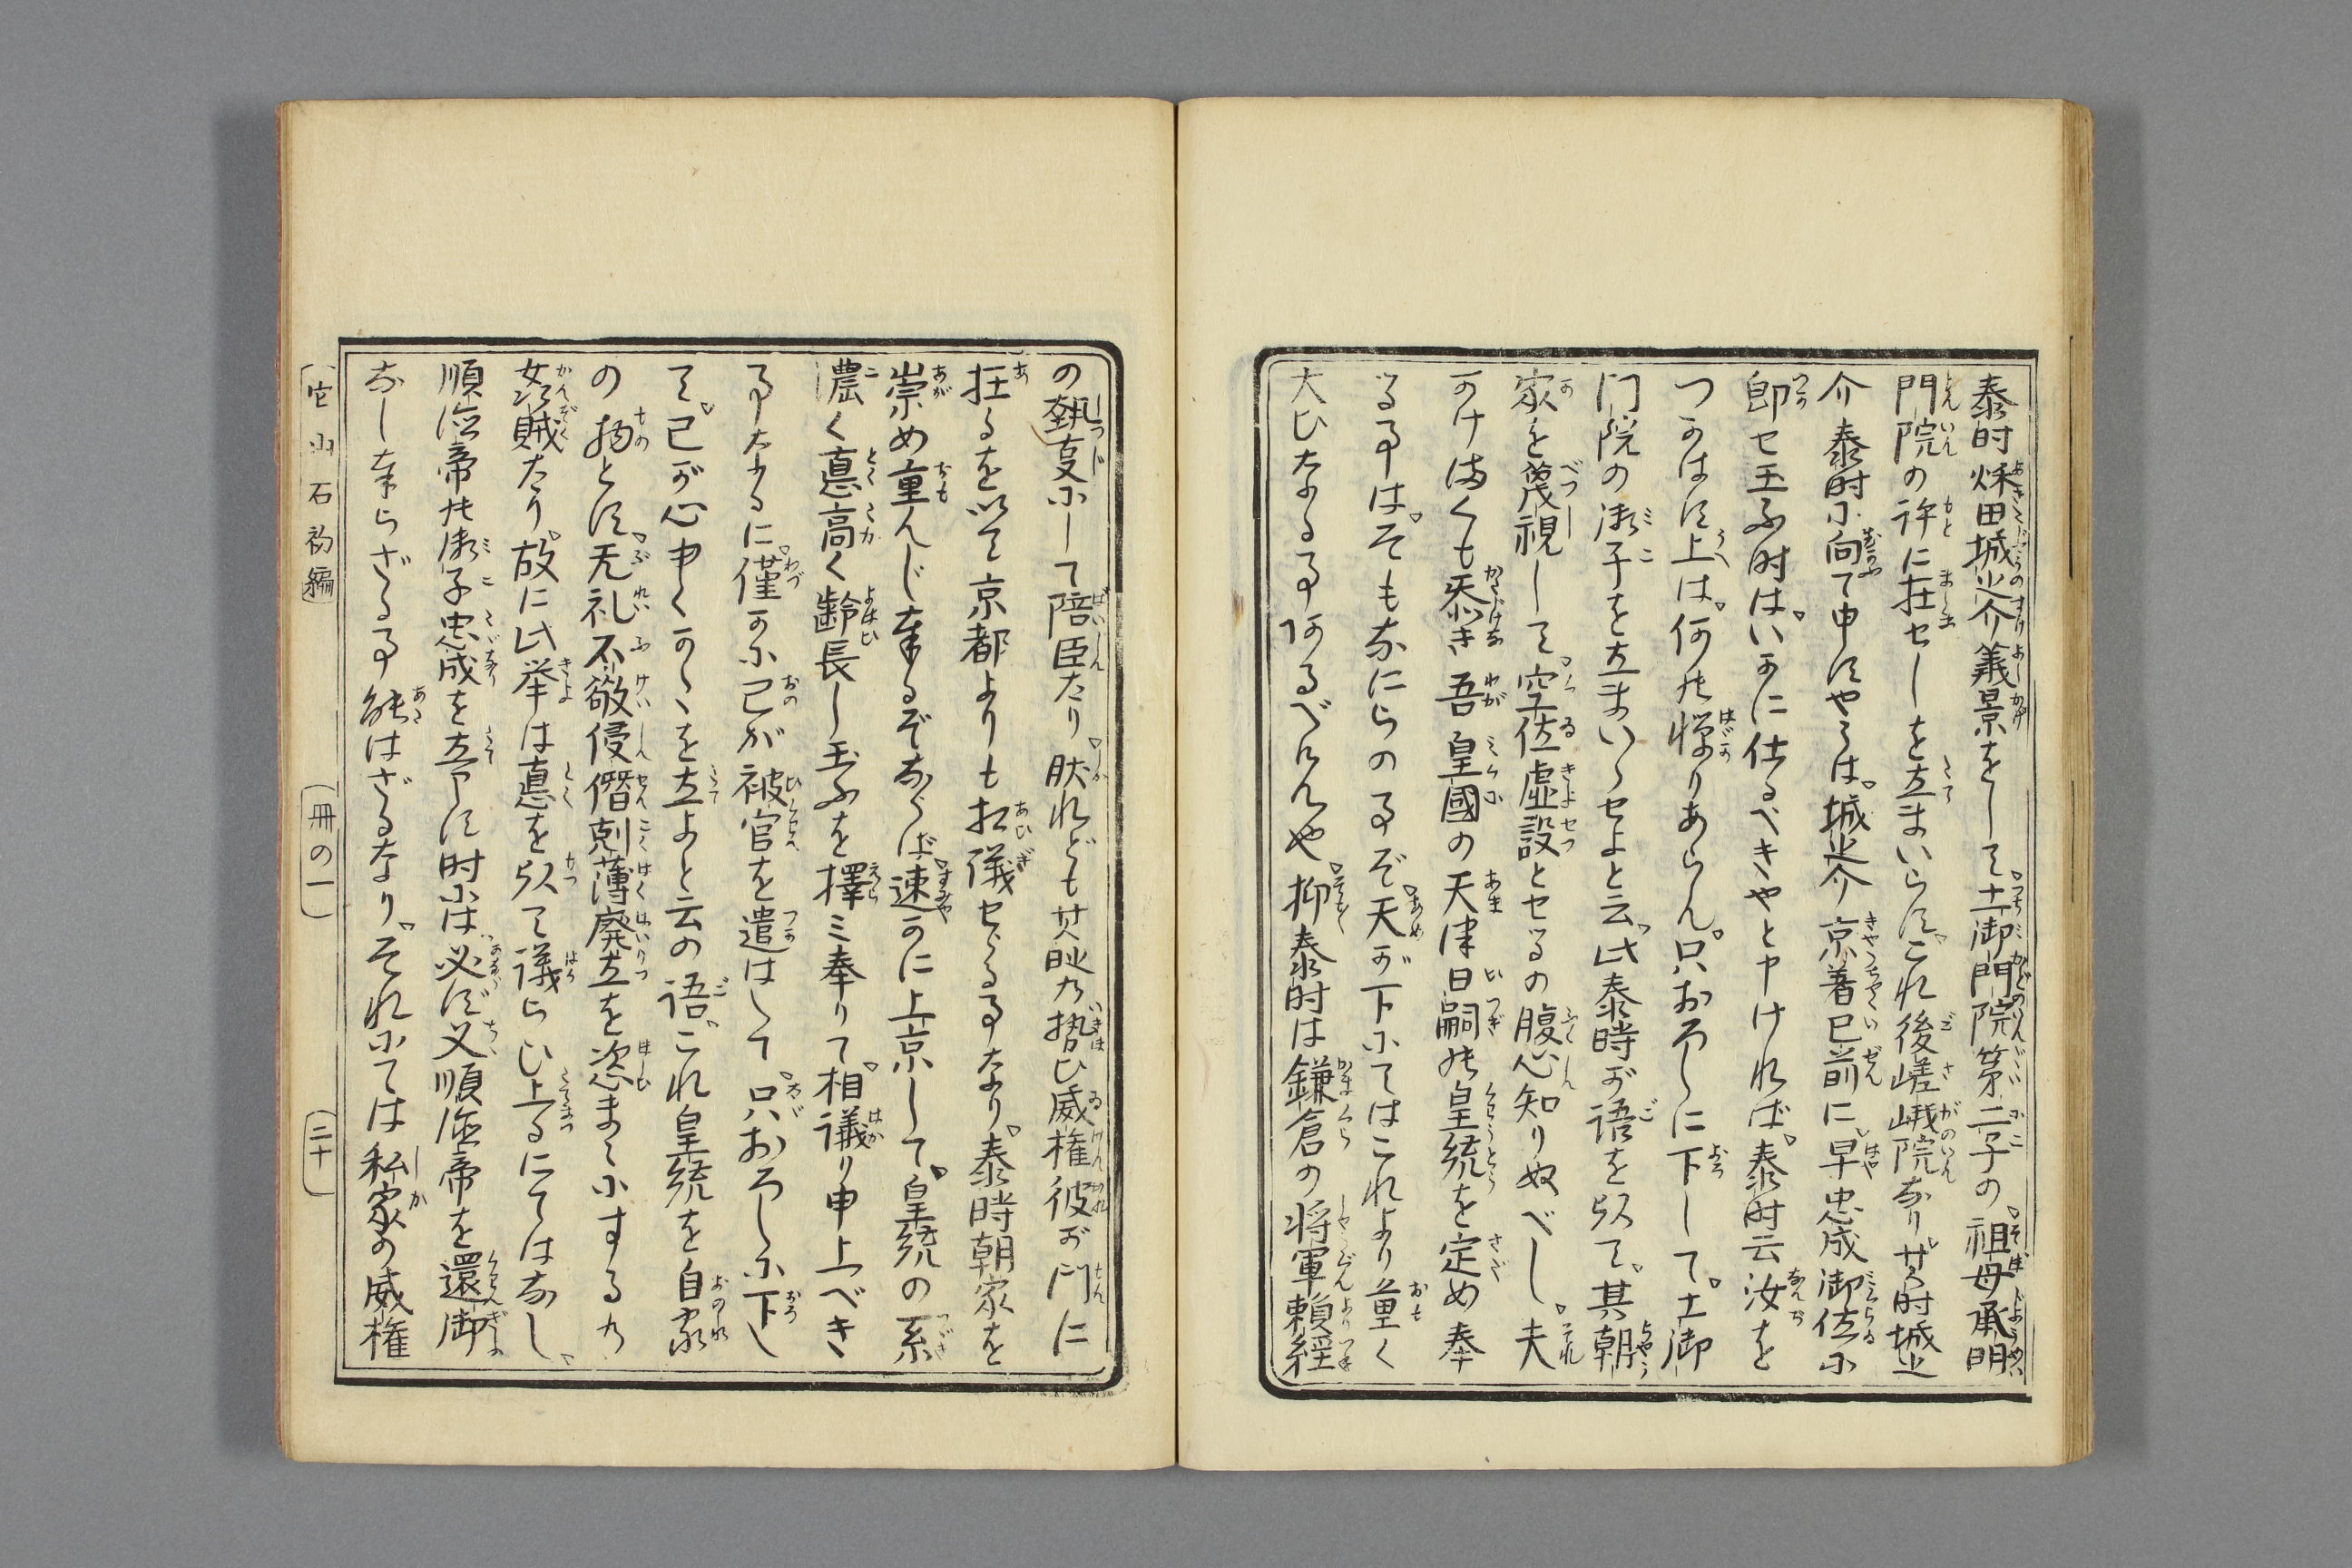 泰時秌田城之介義景をして土御門院第二子の祖母承明
門院の許に在せしを立まいらす。これ後嵯峨院なり。此時城之
介泰時に向て申すやうは。城之介京着已前に。早忠成御位に
即せ玉ふ時は。いかに仕るべきやと申ければ。泰時云汝を
つかはす上は。何の憚りあらん。只おろしに下して。土御
门院の御子を立まいらせよと云。此泰時が語を以て。其朝
家を蔑視して。空位虚設とせるの腹心知りぬべし。夫
かけまくも忝き吾皇國の天津日嗣の皇統を定め奉
る事は。そも〳〵なにらの事ぞ。天が下にてはこれより重く
大ひなる事何るべけんや。抑泰時は鎌倉の将軍頼経
の執事にして陪臣たり。肰れども其時の勢ひ威権彼が门に
在るを以て京都よりも相儀せらるる事なり。泰時朝家を
崇め重んじ奉るぞならば。速かに上京して。皇統の系
濃く悳高く齢長し玉ふを擇ミ奉りて。相議り申上べき
事なるに。僅かに己が被官を遣はして。只おろしに下し
て。己が心中〳〵かくを立よと云の語。これ皇統を自家
の物とす。无礼不敬侵僭剋薄廃立を恣まゝにするの
姦賊たり。故に此挙は悳を以て議らひ上るにてはなし。
順徳帝の御子忠成を立申す时には。必ず父順徳帝を還御
なし奉らざる事能はざるなり。それにては私家の威権
它山石初編
冊の一
二十